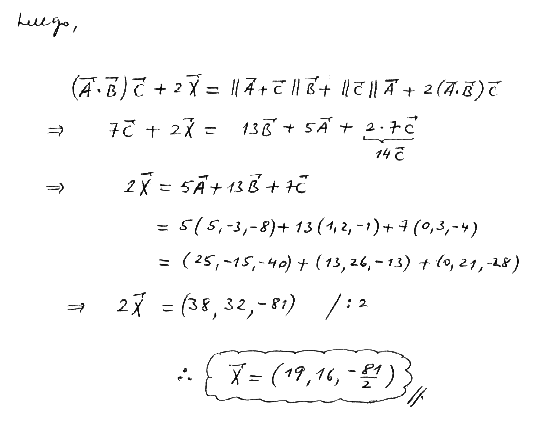 Luego,
(A⃗·B⃗)C⃗ + 2X⃗ = ||A⃗+C⃗||B⃗ + ||C⃗||A⃗ + 2(A⃗·B⃗)C⃗
⇒ 7C⃗ + 2X⃗ = 13B⃗ + 5A⃗ + 2·7C⃗
14C⃗
⇒ 2X⃗ = 5A⃗ + 13B⃗ + 7C⃗
= 5(5,-3,-8) + 13(1,2,-1) + 7(0,3,-4)
= (25,-15,-40) + (13,26,-13) + (0,21,-28)
⇒ 2X⃗ = (38,32,-81) /:2
∴ X⃗ = (19,16,-81/2)//